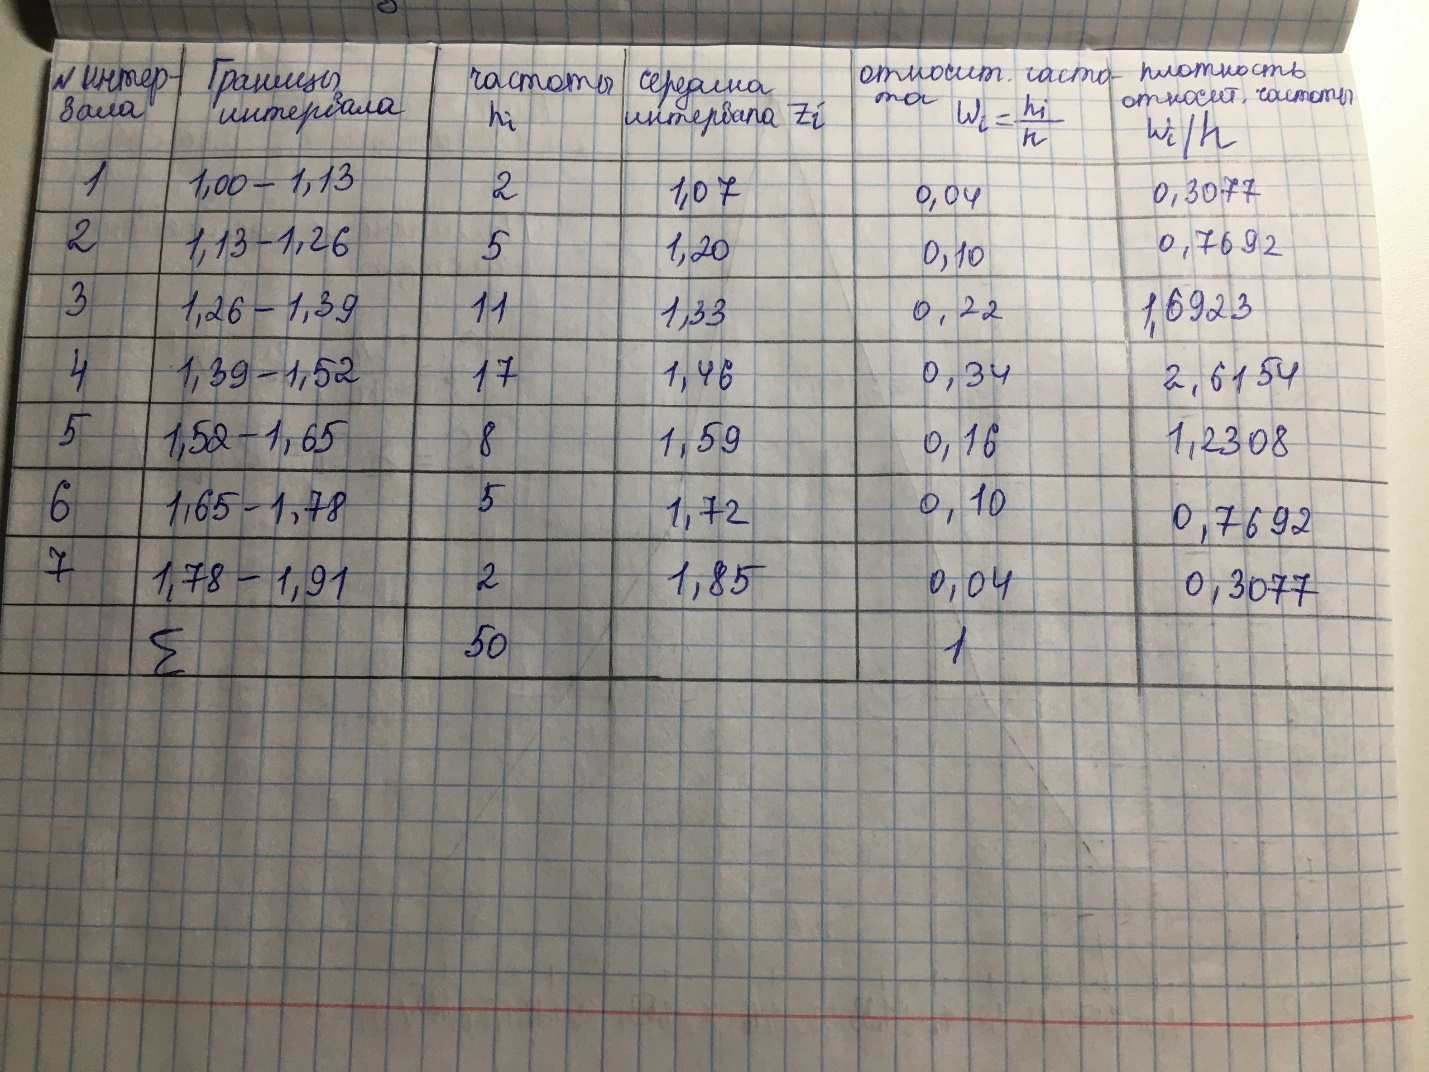 N интер- Границы частоты середина относит. часто- плотность
вала интервала ni интервала Zi та Wi = ni/n относит. частоты Wi/h
1 1,00 – 1,13 2 1,07 0,04 0,3077
2 1,13 – 1,26 5 1,20 0,10 0,7692
3 1,26 – 1,39 11 1,33 0,22 1,6923
4 1,39 – 1,52 17 1,46 0,34 2,6154
5 1,52 – 1,65 8 1,59 0,16 1,2308
6 1,65 – 1,78 5 1,72 0,10 0,7692
7 1,78 – 1,91 2 1,85 0,04 0,3077
Σ 50 1